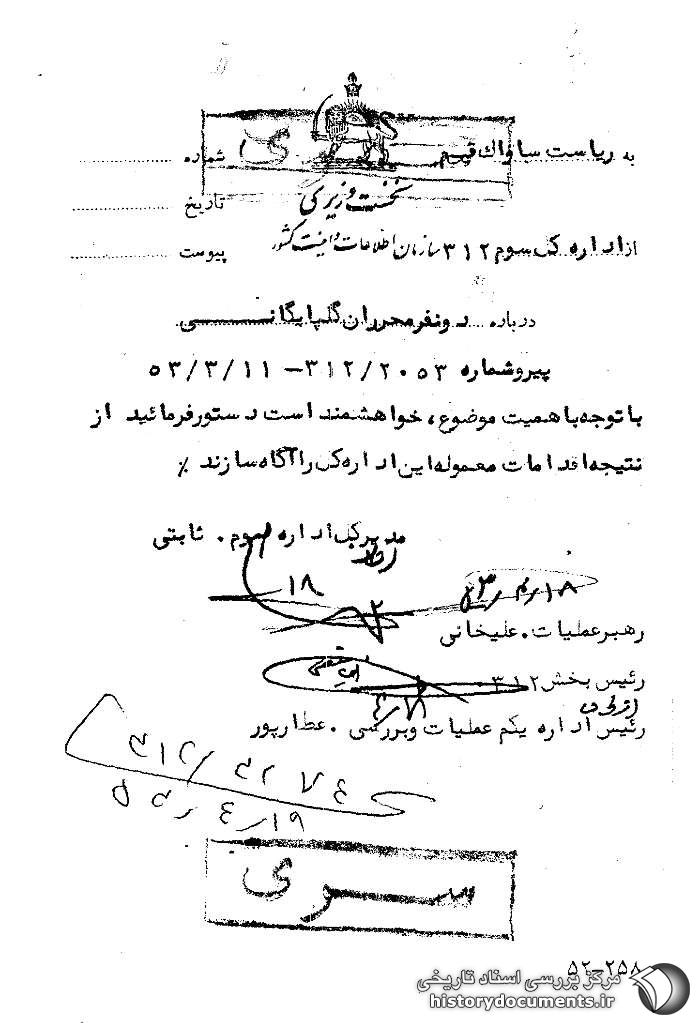 به ریاست ساواک قم
شماره
نخست وزیری
تاریخ
از اداره کل سوم ۳۱۲ سازمان اطلاعات و امنیت کشور
پیوست
درباره دونفر محرران گلپایگانی
پیرو شماره ۳۱۲/۲۰۵۳ – ۵۳/۳/۱۱
با توجه با همیت موضوع، خواهشمند است دستور فرمائید از
نتیجه اقدامات معموله این اداره کل را آگاه سازند ٪
مدیر کل اداره سوم. ثابتی
۱۸
رهبر عملیات. علیخانی
رئیس بخش ۳۱۲
رئیس اداره یکم عملیات و بررسی. عطارپور
۳۱۲/۳۲۷۴
۵۳/۴/۱۹
سری
۵۲-۲۵۸
مرکز بررسی اسناد تاریخی
historydocuments.ir